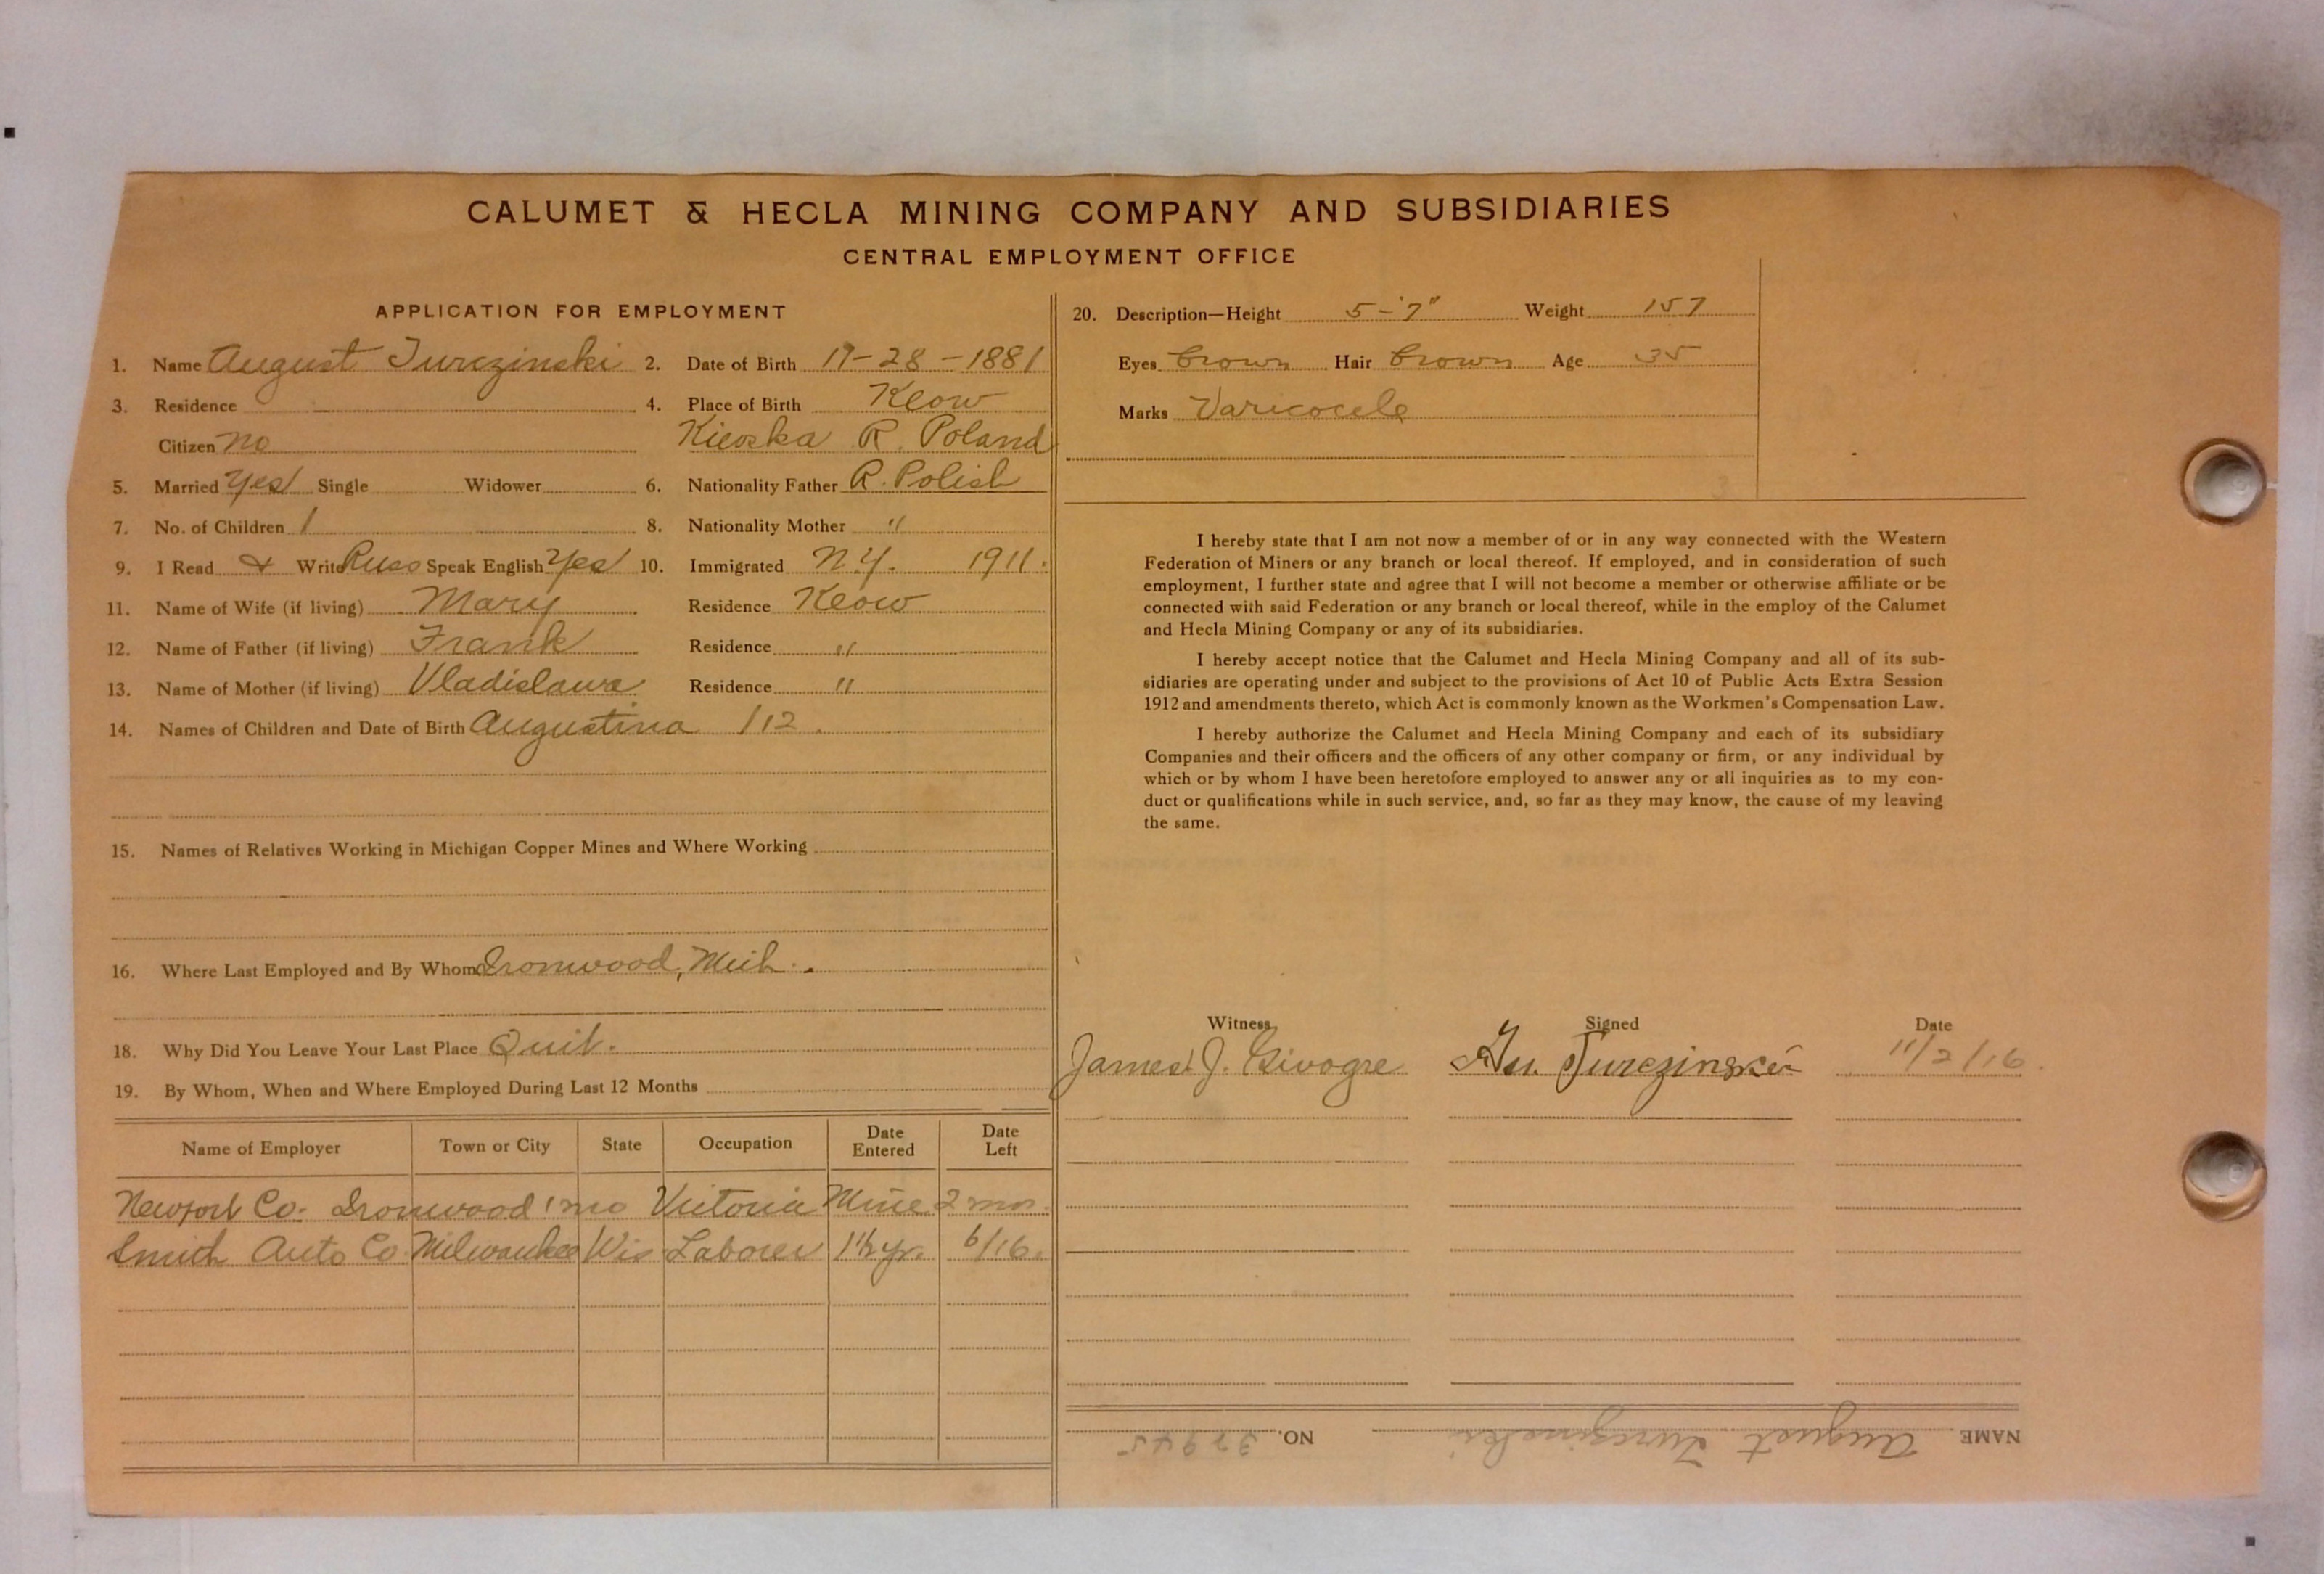 CALUMET & HECLA MINING COMPANY AND SUBSIDIARIES
CENTRAL EMPLOYMENT OFFICE
APPLICATION FOR EMPLOYMENT
1. Name August Turczinski 2. Date of Birth 11-28-1881
3. Residence 4. Place of Birth Keow
Citizen no Kieoska R. Poland
5. Married Yes Single Widower 6. Nationality Father R. Polish
7. No. of Children 1 8. Nationality Mother "
9. I Read & Write Russ Speak English Yes 10. Immigrated N.Y. 1911.
11. Name of Wife (if living) Mary Residence Keow
12. Name of Father (if living) Frank Residence "
13. Name of Mother (if living) Vladislawa Residence "
14. Names of Children and Date of Birth Augustina /12.
15. Names of Relatives Working in Michigan Copper Mines and Where Working
16. Where Last Employed and By Whom Ironwood, Mich.
18. Why Did You Leave Your Last Place Quit.
19. By Whom, When and Where Employed During Last 12 Months
Name of Employer Town or City State Occupation Date Entered Date Left
Newport Co. Ironwood 1 mo Victoria Mine 2 mos.
Smith Auto Co. Milwaukee Wis Laborer 1½ yr. 6/16.
20. Description—Height 5-'7" Weight 157
Eyes brown Hair brown Age 35
Marks Varicocele
I hereby state that I am not now a member of or in any way connected with the Western
Federation of Miners or any branch or local thereof. If employed, and in consideration of such
employment, I further state and agree that I will not become a member or otherwise affiliate or be
connected with said Federation or any branch or local thereof, while in the employ of the Calumet
and Hecla Mining Company or any of its subsidiaries.
I hereby accept notice that the Calumet and Hecla Mining Company and all of its sub-
sidiaries are operating under and subject to the provisions of Act 10 of Public Acts Extra Session
1912 and amendments thereto, which Act is commonly known as the Workmen's Compensation Law.
I hereby authorize the Calumet and Hecla Mining Company and each of its subsidiary
Companies and their officers and the officers of any other company or firm, or any individual by
which or by whom I have been heretofore employed to answer any or all inquiries as to my con-
duct or qualifications while in such service, and, so far as they may know, the cause of my leaving
the same.
Witness Signed Date
James J. Turczinski 11/2/16.
NAME August Turczinski NO. 37945